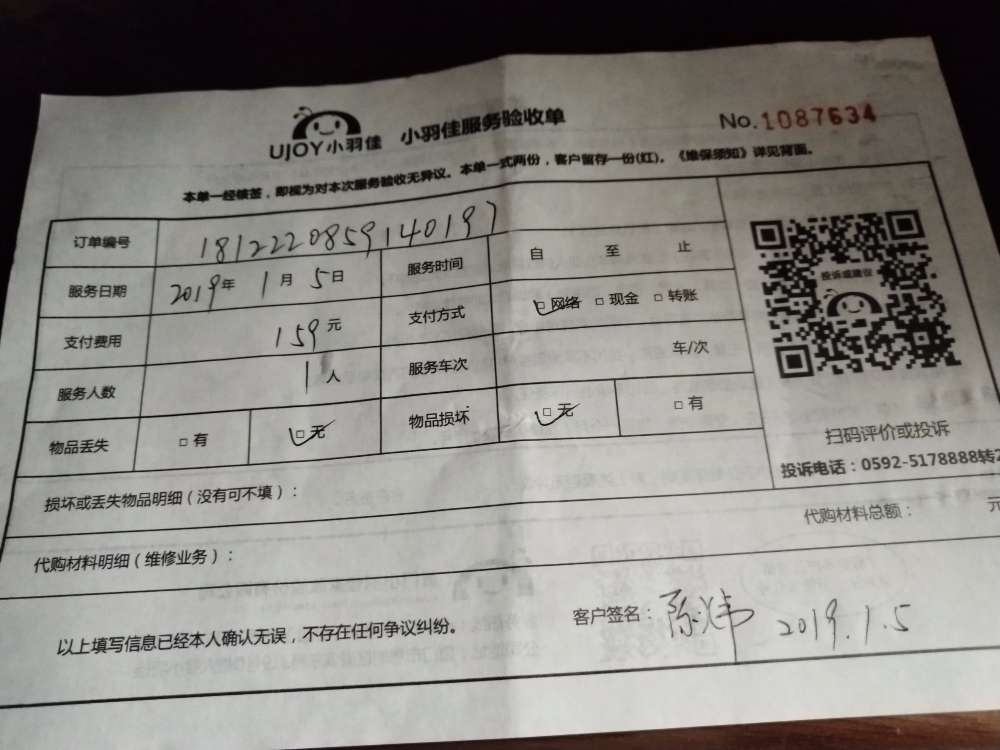 UJOY小羽佳 小羽佳服务验收单 No.1087634
本单一经核签，即视为对本次服务验收无异议。本单一式两份，客户留存一份(红)。《维保须知》详见背面。
订单编号 1812220859140197
服务日期 2019年 1月 5日 服务时间 自 至 止
支付费用 159元 支付方式 □网络 □现金 □转账
服务人数 1人 服务车次 车/次
物品丢失 □有 □无 物品损坏 □无 □有
投诉或建议
扫码评价或投诉
投诉电话：0592-5178888转2
损坏或丢失物品明细（没有可不填）：
代购材料明细（维修业务）： 代购材料总额： 元
以上填写信息已经本人确认无误，不存在任何争议纠纷。 客户签名：陈炜 2019.1.5